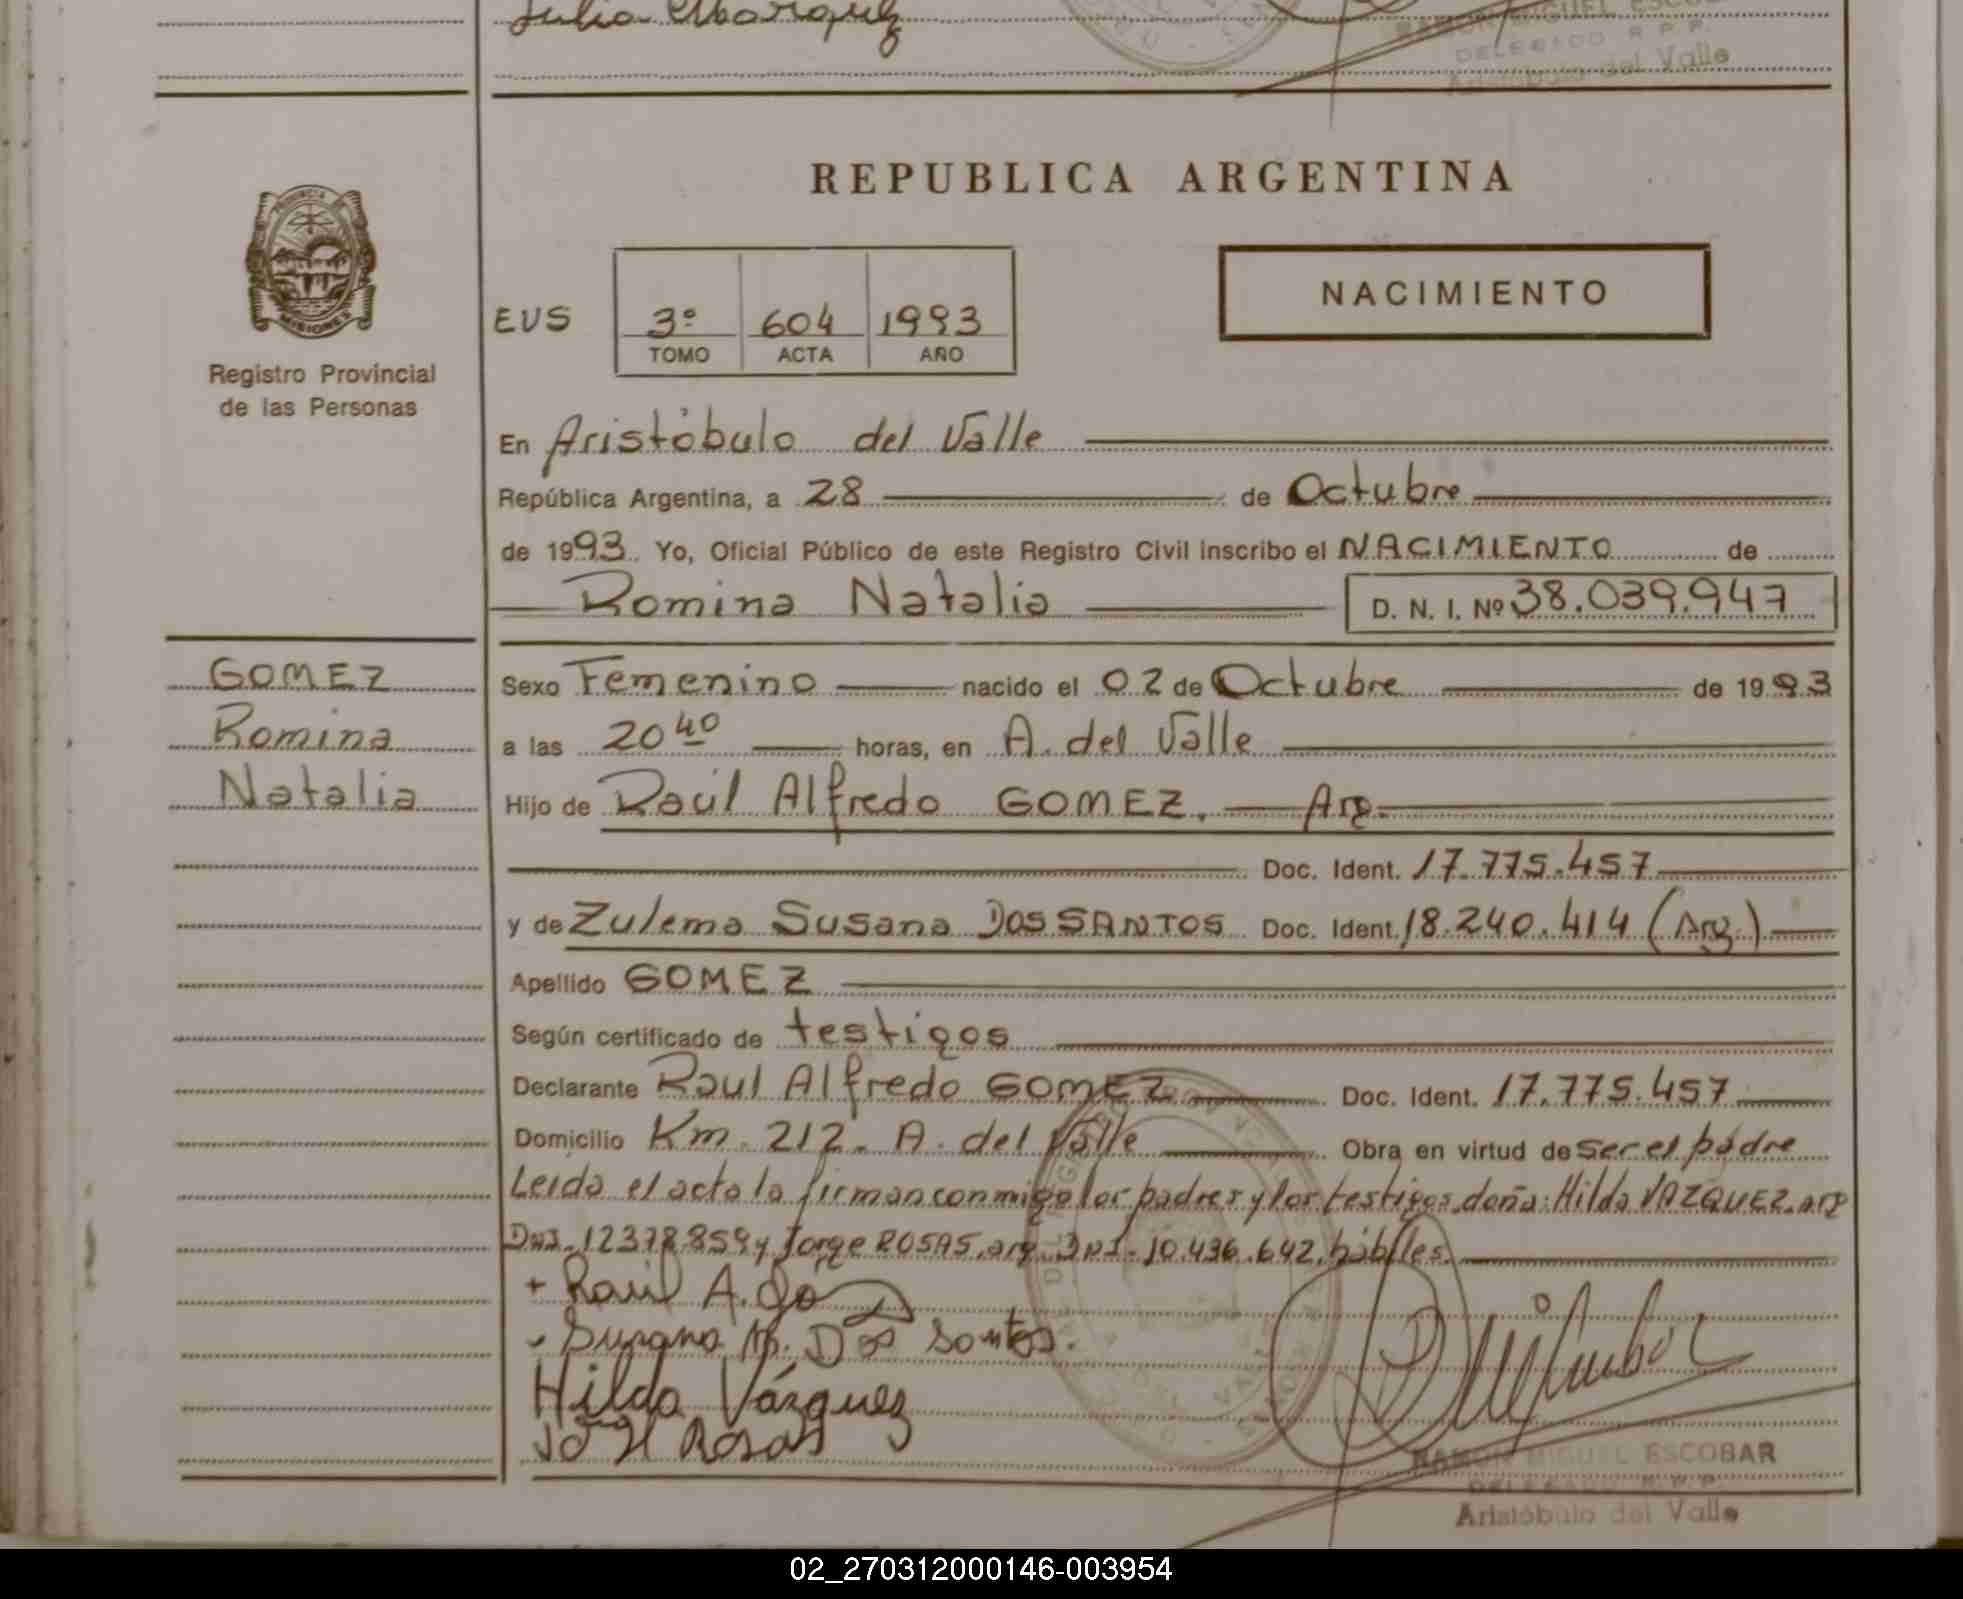 Julia Marquez
RAMON MIGUEL ESCOBAR
DELEGADO R.P.P.
Aristóbulo del Valle
REPUBLICA ARGENTINA
PROVINCIA DE
MISIONES
Registro Provincial
de las Personas
NACIMIENTO
EUS 3º 604 1993
TOMO ACTA AÑO
En Aristóbulo del Valle
República Argentina, a 28 de Octubre
de 1993. Yo, Oficial Público de este Registro Civil inscribo el NACIMIENTO de
Romina Natalia D. N. I. Nº 38.039.947
GOMEZ
Romina
Natalia
Sexo Femenino nacido el 02 de Octubre de 1993
a las 20 40 horas, en A. del Valle
Hijo de Raúl Alfredo GOMEZ. Arg.
Doc. Ident. 17.775.457
y de Zulema Susana DOS SANTOS Doc. Ident. 18.240.414 (Arg.)
Apellido GOMEZ
Según certificado de testigos
Declarante Raul Alfredo GOMEZ Doc. Ident. 17.775.457
Domicilio Km. 212. A. del Valle Obra en virtud de ser el padre
Leida el acta la firman conmigo los padres y los testigos doña: Hilda VAZQUEZ. arg
DNI. 12378859 y Jorge ROSAS, arg. DNI. 10.436.642, hábiles.
+ Raúl A. Go
Susana M. Dos Santos.
Hilda Vázquez
Rosas
RAMON MIGUEL ESCOBAR
DELEGADO R.P.P.
Aristóbulo del Valle
02_270312000146-003954